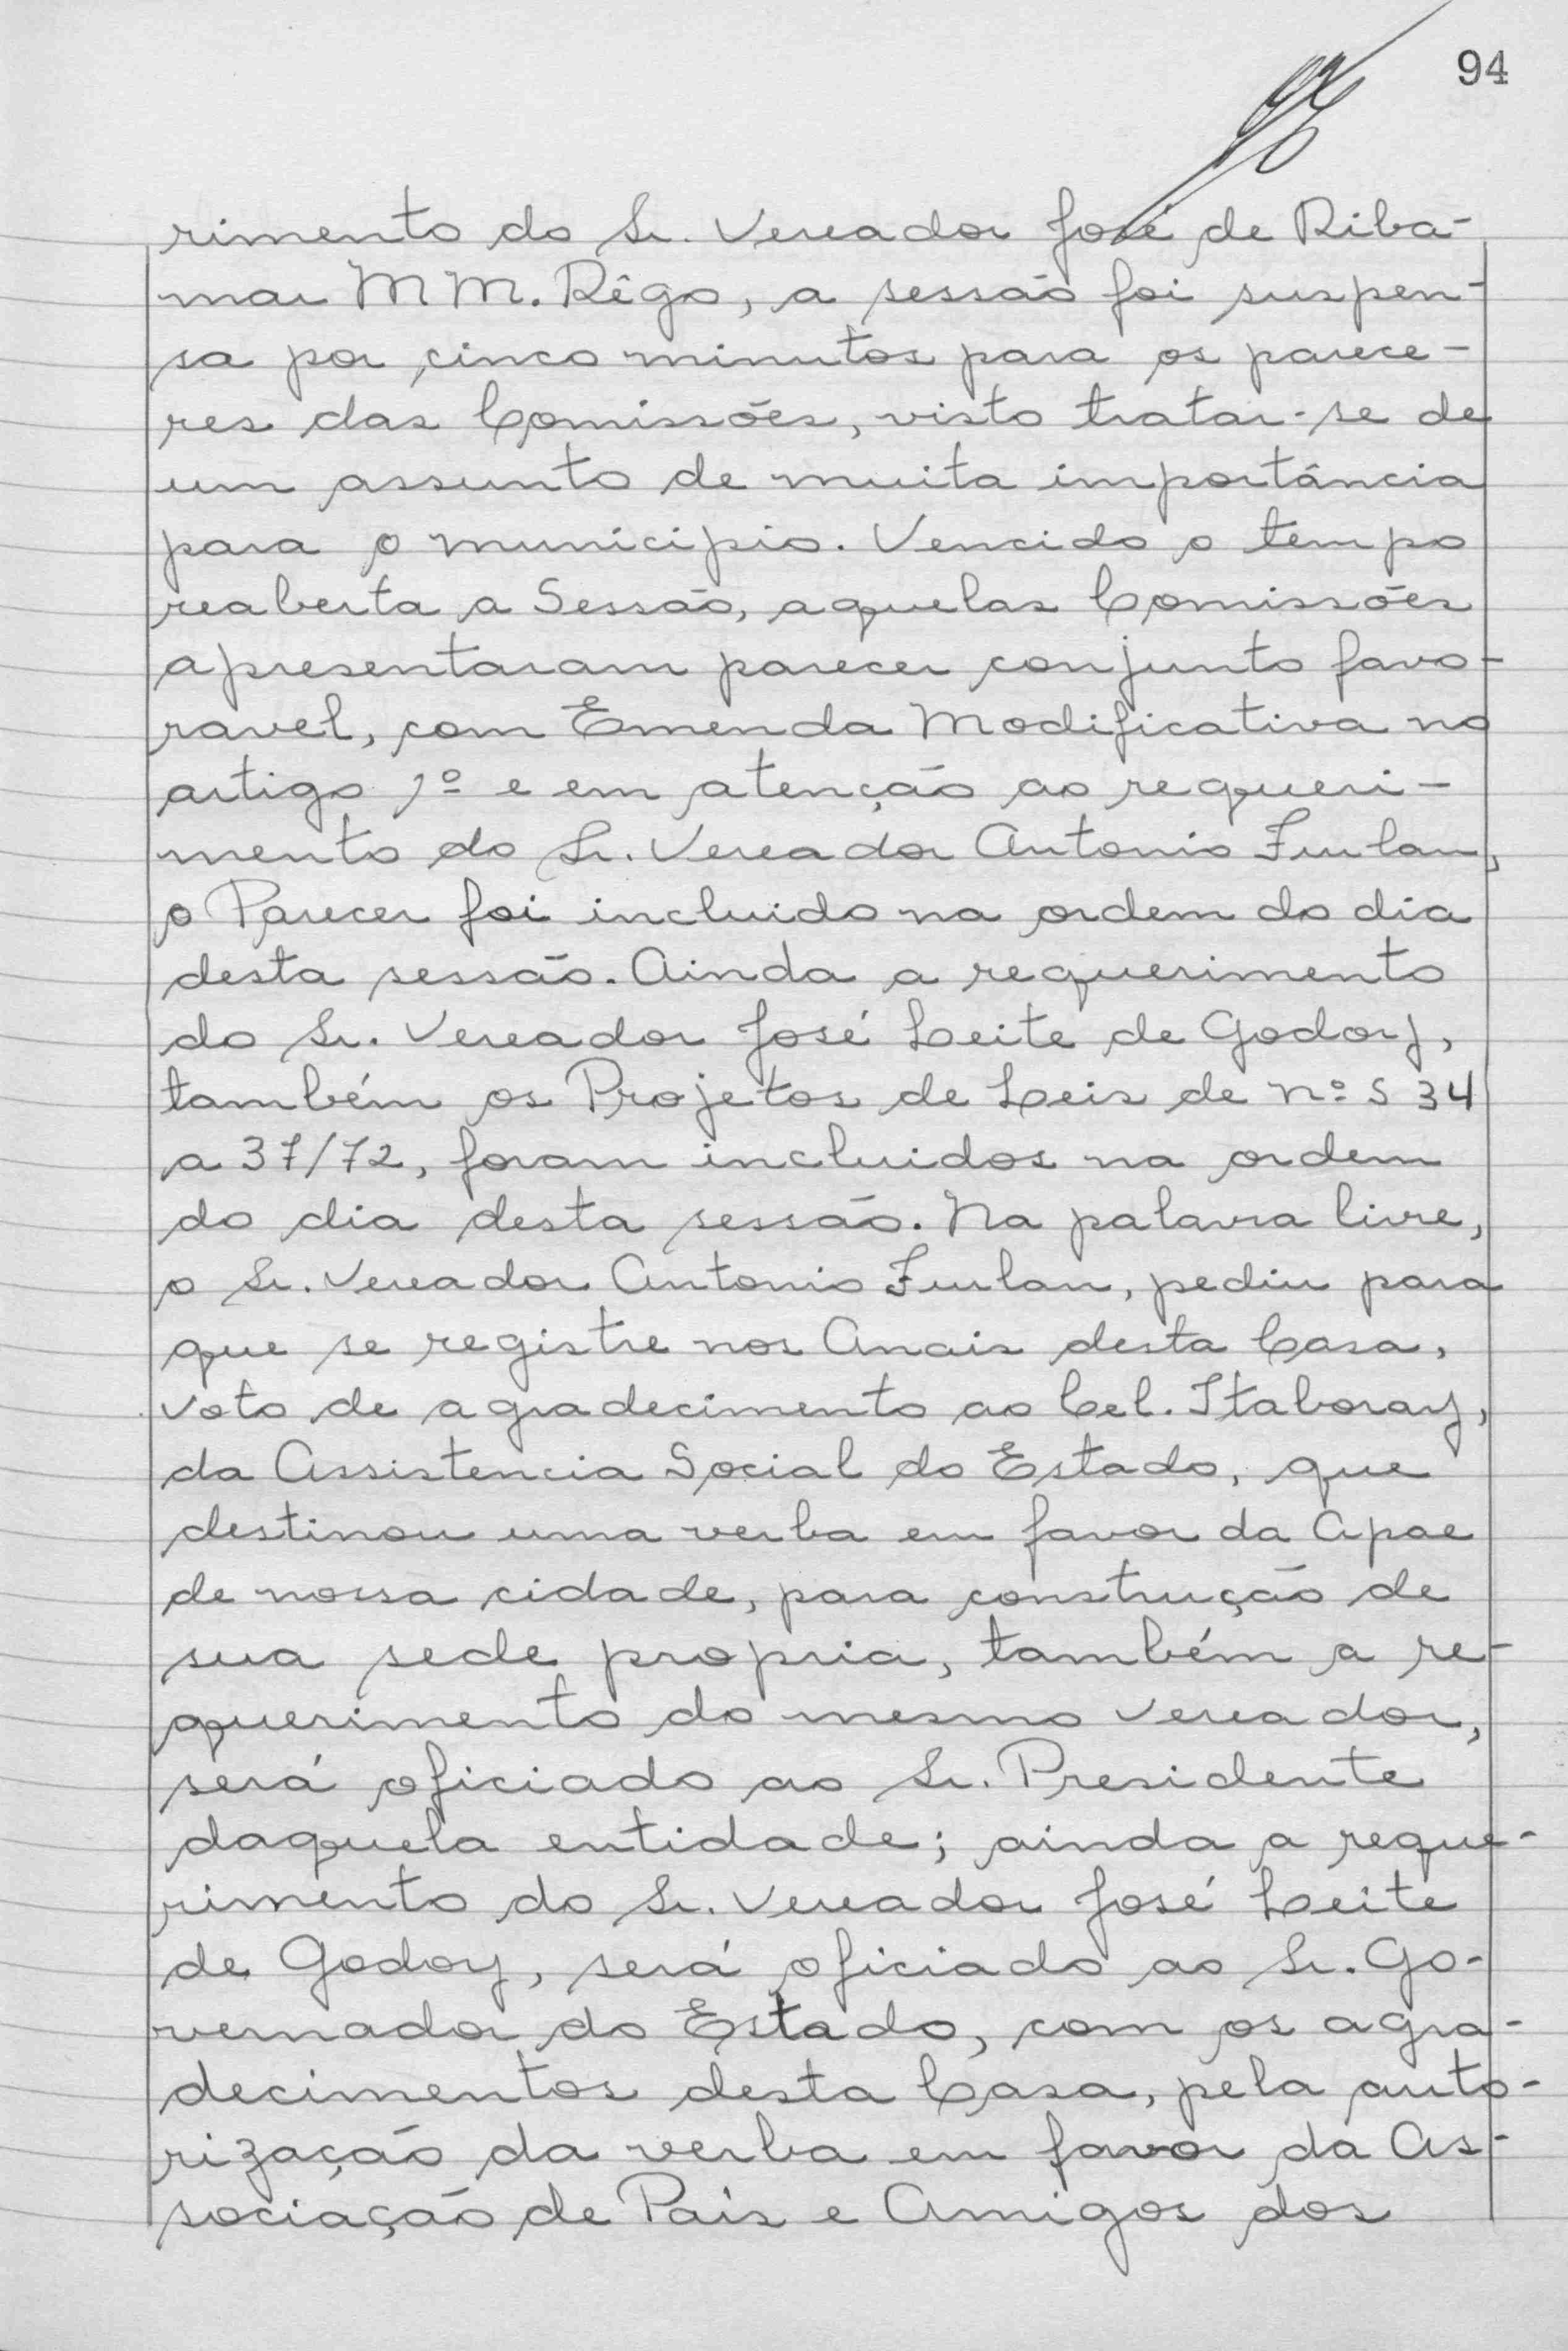 94
rimento do Sr. Vereador José de Riba-
mar M M. Rêgo, a sessão foi suspen-
sa por cinco minutos para os parece-
res das Comissões, visto tratar-se de
um assunto de muita importância
para o municipio. Vencido o tempo
reaberta a Sessão, aquelas Comissões
apresentaram parecer conjunto favo-
ravel, com Emenda Modificativa no
artigo 1º e em atenção ao requeri-
mento do Sr. Vereador Antonio Furlan,
o Parecer foi incluido na ordem do dia
desta sessão. Ainda a requerimento
do Sr. Vereador José Leite de Godoy,
também os Projetos de Leis de nº s 34
a 37/72, foram incluidos na ordem
do dia desta sessão. Na palavra livre,
o Sr. Vereador Antonio Furlan, pediu para
que se registre nos Anais desta Casa,
voto de agradecimento ao Cel. Itaboray,
da Assistencia Social do Estado, que
destinou uma verba em favor da Apae
de nossa cidade, para construção de
sua sede propria, também a re-
querimento do mesmo Vereador,
será oficiado ao Sr. Presidente
daquela entidade; ainda a reque-
rimento do Sr. Vereador José Leite
de Godoy, será oficiado ao Sr. Go-
vernador do Estado, com os agra-
decimentos desta Casa, pela auto-
rização da verba em favor da As-
sociação de Pais e Amigos dos